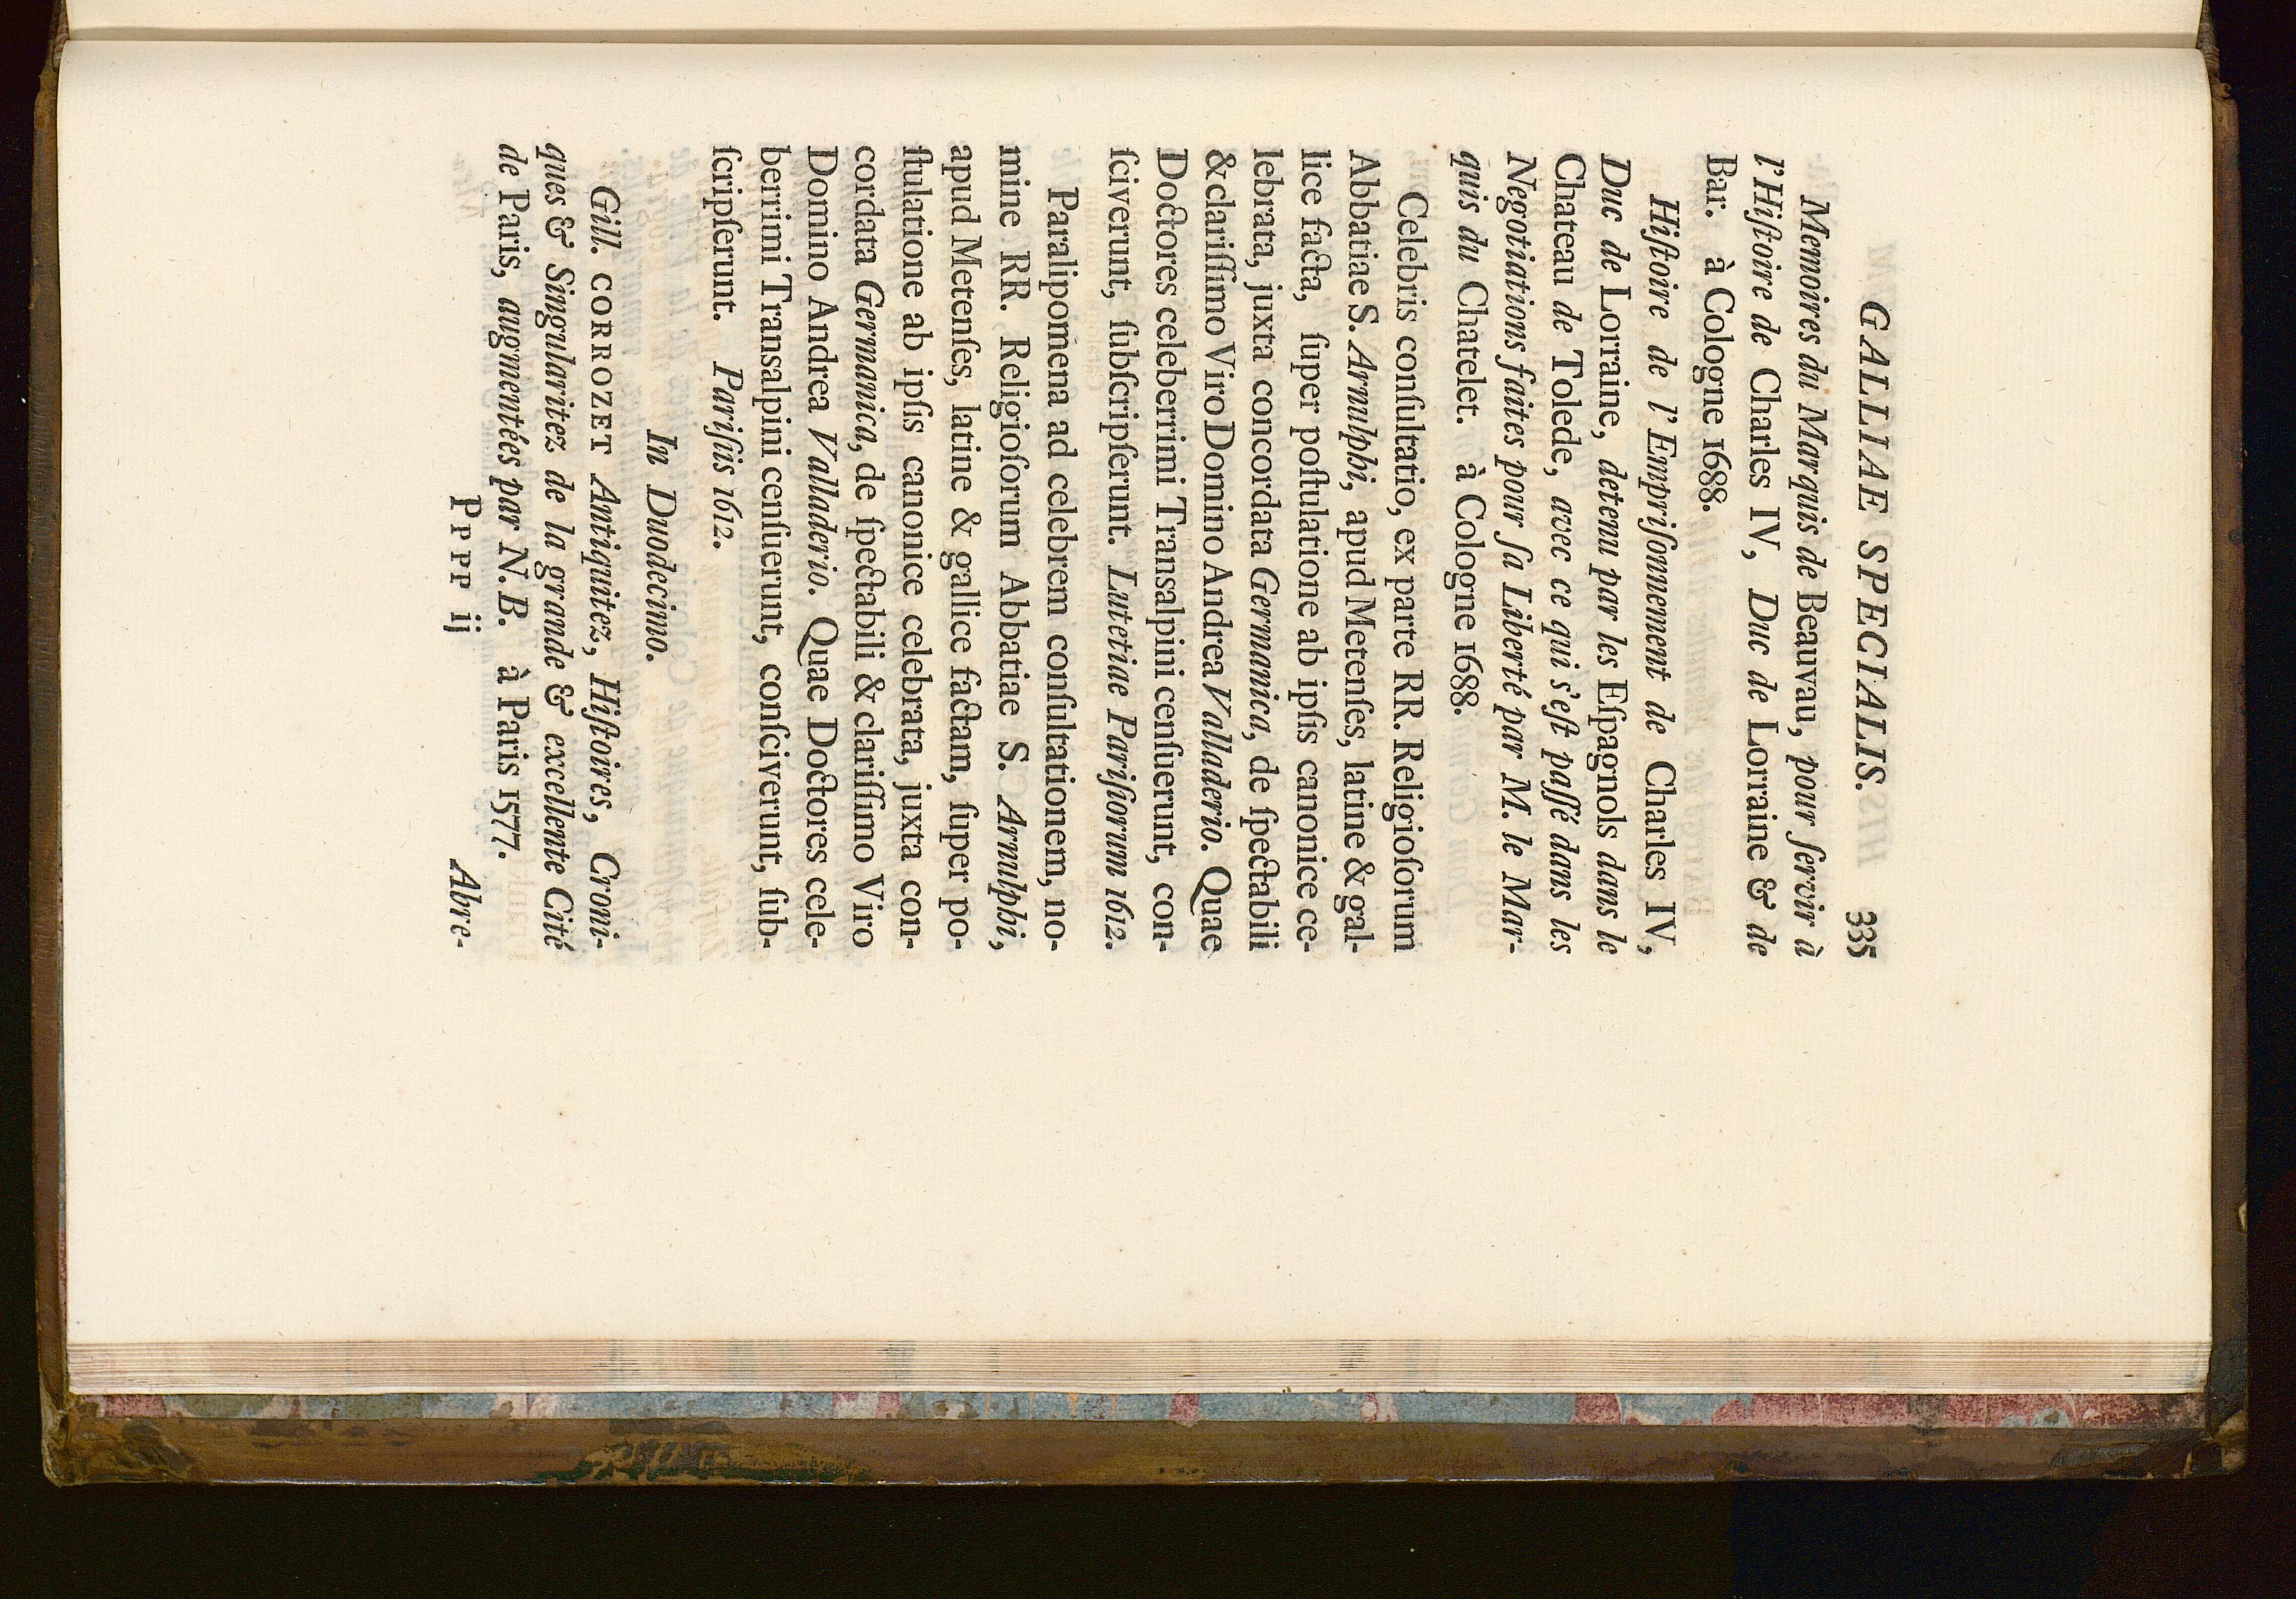 GALLIAE SPECIALIS. 335
Memoires du Marquis de Beauvau, pour ſervir à
l'Hiſtoire de Charles IV, Duc de Lorraine & de
Bar. à Cologne 1688.
Hiſtoire de l'Empriſonnement de Charles IV,
Duc de Lorraine, detenu par les Eſpagnols dans le
Chateau de Tolede, avec ce qui s'eſt paſſé dans les
Negotiations faites pour ſa Liberté par M. le Mar-
quis du Chatelet. à Cologne 1688.
Celebris conſultatio, ex parte RR. Religioſorum
Abbatiae S. Arnulphi, apud Metenſes, latine & gal-
lice facta, ſuper poſtulatione ab ipſis canonice ce-
lebrata, juxta concordata Germanica, de ſpectabili
& clariſſimo Viro Domino Andrea Valladerio. Quae
Doctores celeberrimi Transalpini cenſuerunt, con-
ſciverunt, ſubſcripſerunt. Lutetiae Pariſiorum 1612.
Paralipomena ad celebrem conſultationem, no-
mine RR. Religioſorum Abbatiae S. Arnulphi,
apud Metenſes, latine & gallice factam, ſuper po-
ſtulatione ab ipſis canonice celebrata, juxta con-
cordata Germanica, de ſpectabili & clariſſimo Viro
Domino Andrea Valladerio. Quae Doctores cele-
berrimi Transalpini cenſuerunt, conſciverunt, ſub-
ſcripſerunt. Pariſiis 1612.
In Duodecimo.
Gill. CORROZET Antiquitez, Hiſtoires, Croni-
ques & Singularitez de la grande & excellente Cité
de Paris, augmentées par N. B. à Paris 1577.
PPPP ij Abre-